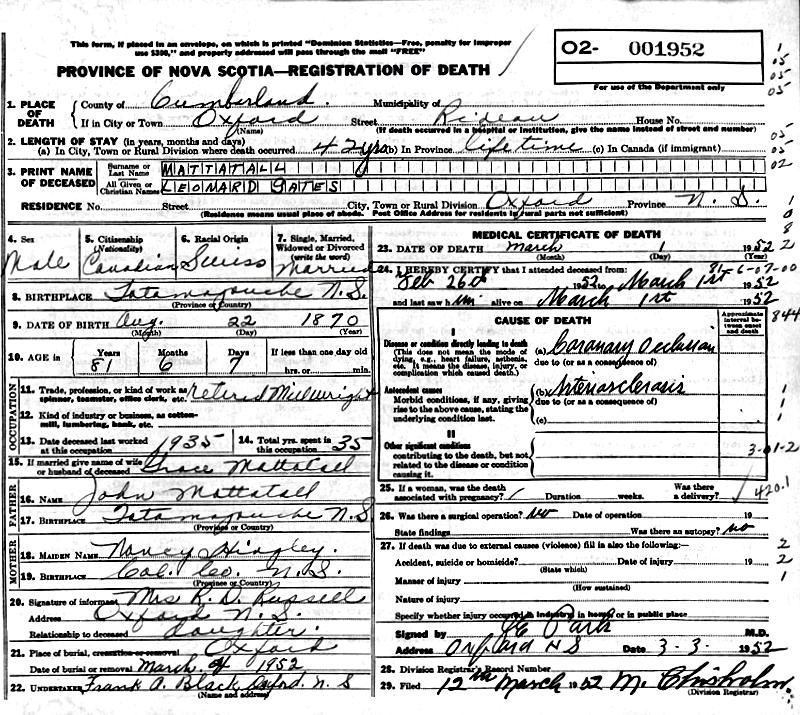 This form, if placed in an envelope, on which is printed "Dominion Statistics—Free, penalty for improper
use $300," and properly addressed will pass through the mail "FREE"
PROVINCE OF NOVA SCOTIA—REGISTRATION OF DEATH
O2- 001952
For use of the Department only
1. PLACE OF DEATH
County of Cumberland. Municipality of
If in City or Town Oxford Street Rideau House No.
(Name) (If death occurred in a hospital or institution, give the name instead of street and number)
2. LENGTH OF STAY (in years, months and days)
(a) In City, Town or Rural Division where death occurred 42 yrs (b) In Province lifetime (c) In Canada (if immigrant)
3. PRINT NAME OF DECEASED
Surname or Last Name MATTATALL
All Given or Christian Names LEONARD GATES
RESIDENCE No. Street City, Town or Rural Division Oxford Province N. S.
(Residence means usual place of abode. Post Office Address for residents in rural parts not sufficient)
4. Sex Male
5. Citizenship (Nationality) Canadian
6. Racial Origin Swiss
7. Single, Married, Widowed or Divorced (write the word) Married
8. BIRTHPLACE Tatamagouche N.S.
(Province or Country)
9. DATE OF BIRTH Aug. 22 1870
(Month) (Day) (Year)
10. AGE in Years 81 Months 6 Days 7 If less than one day old
hrs. or min.
OCCUPATION
11. Trade, profession, or kind of work as spinner, teamster, office clerk, etc. retired Millwright
12. Kind of industry or business, as cotton-mill, lumbering, bank, etc.
13. Date deceased last worked at this occupation 1935
14. Total yrs. spent in this occupation 35
15. If married give name of wife or husband of deceased Grace Mattatall
FATHER
16. NAME John Mattatall
17. BIRTHPLACE Tatamagouche N.S
(Province or Country)
MOTHER
18. MAIDEN NAME Nancy Hingley.
19. BIRTHPLACE Col. Co. N.S.
(Province or Country)
20. Signature of informant Mrs R. D. Russell
Address Oxford N.S.
Relationship to deceased daughter.
21. Place of burial, cremation or removal Oxford
Date of burial or removal March 1952
22. UNDERTAKER Frank A. Black Oxford. N. S
(Name and address)
MEDICAL CERTIFICATE OF DEATH
23. DATE OF DEATH March 1 1952
(Month) (Day) (Year)
24. I HEREBY CERTIFY that I attended deceased from:
Feb 26th 1952 to March 1st 1952
and last saw him alive on March 1st 1952
81-6-07-00
CAUSE OF DEATH
Approximate interval between onset and death
I
Disease or condition directly leading to death
(This does not mean the mode of dying, e.g., heart failure, asthenia, etc. It means the disease, injury, or complication which caused death.)
(a) Coronary Occlusion
due to (or as a consequence of)
Antecedent causes
Morbid conditions, if any, giving rise to the above cause, stating the underlying condition last.
(b) Arteriosclerosis
due to (or as a consequence of)
(c)
II
Other significant conditions
contributing to the death, but not related to the disease or condition causing it.
844
3-01-2
420.1
25. If a woman, was the death associated with pregnancy? Duration weeks. Was there a delivery?
26. Was there a surgical operation? no Date of operation 19
State findings Was there an autopsy? no
27. If death was due to external causes (violence) fill in also the following:—
Accident, suicide or homicide? Date of injury 19
(State which)
Manner of injury
(How sustained)
Nature of injury
Specify whether injury occurred in industry in home or in public place
Signed by M.D.
Address Oxford N S Date 3-3. 1952
28. Division Registrar's Record Number
29. Filed 12th March 1952 M. Chisholm.
(Division Registrar)